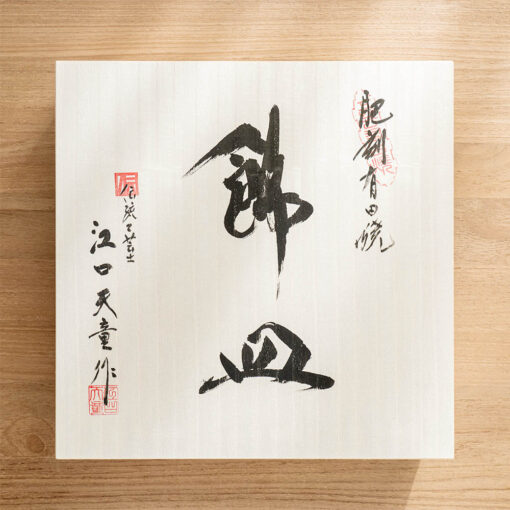 肥前有田焼
飾皿
伝統工芸士
江口天童作